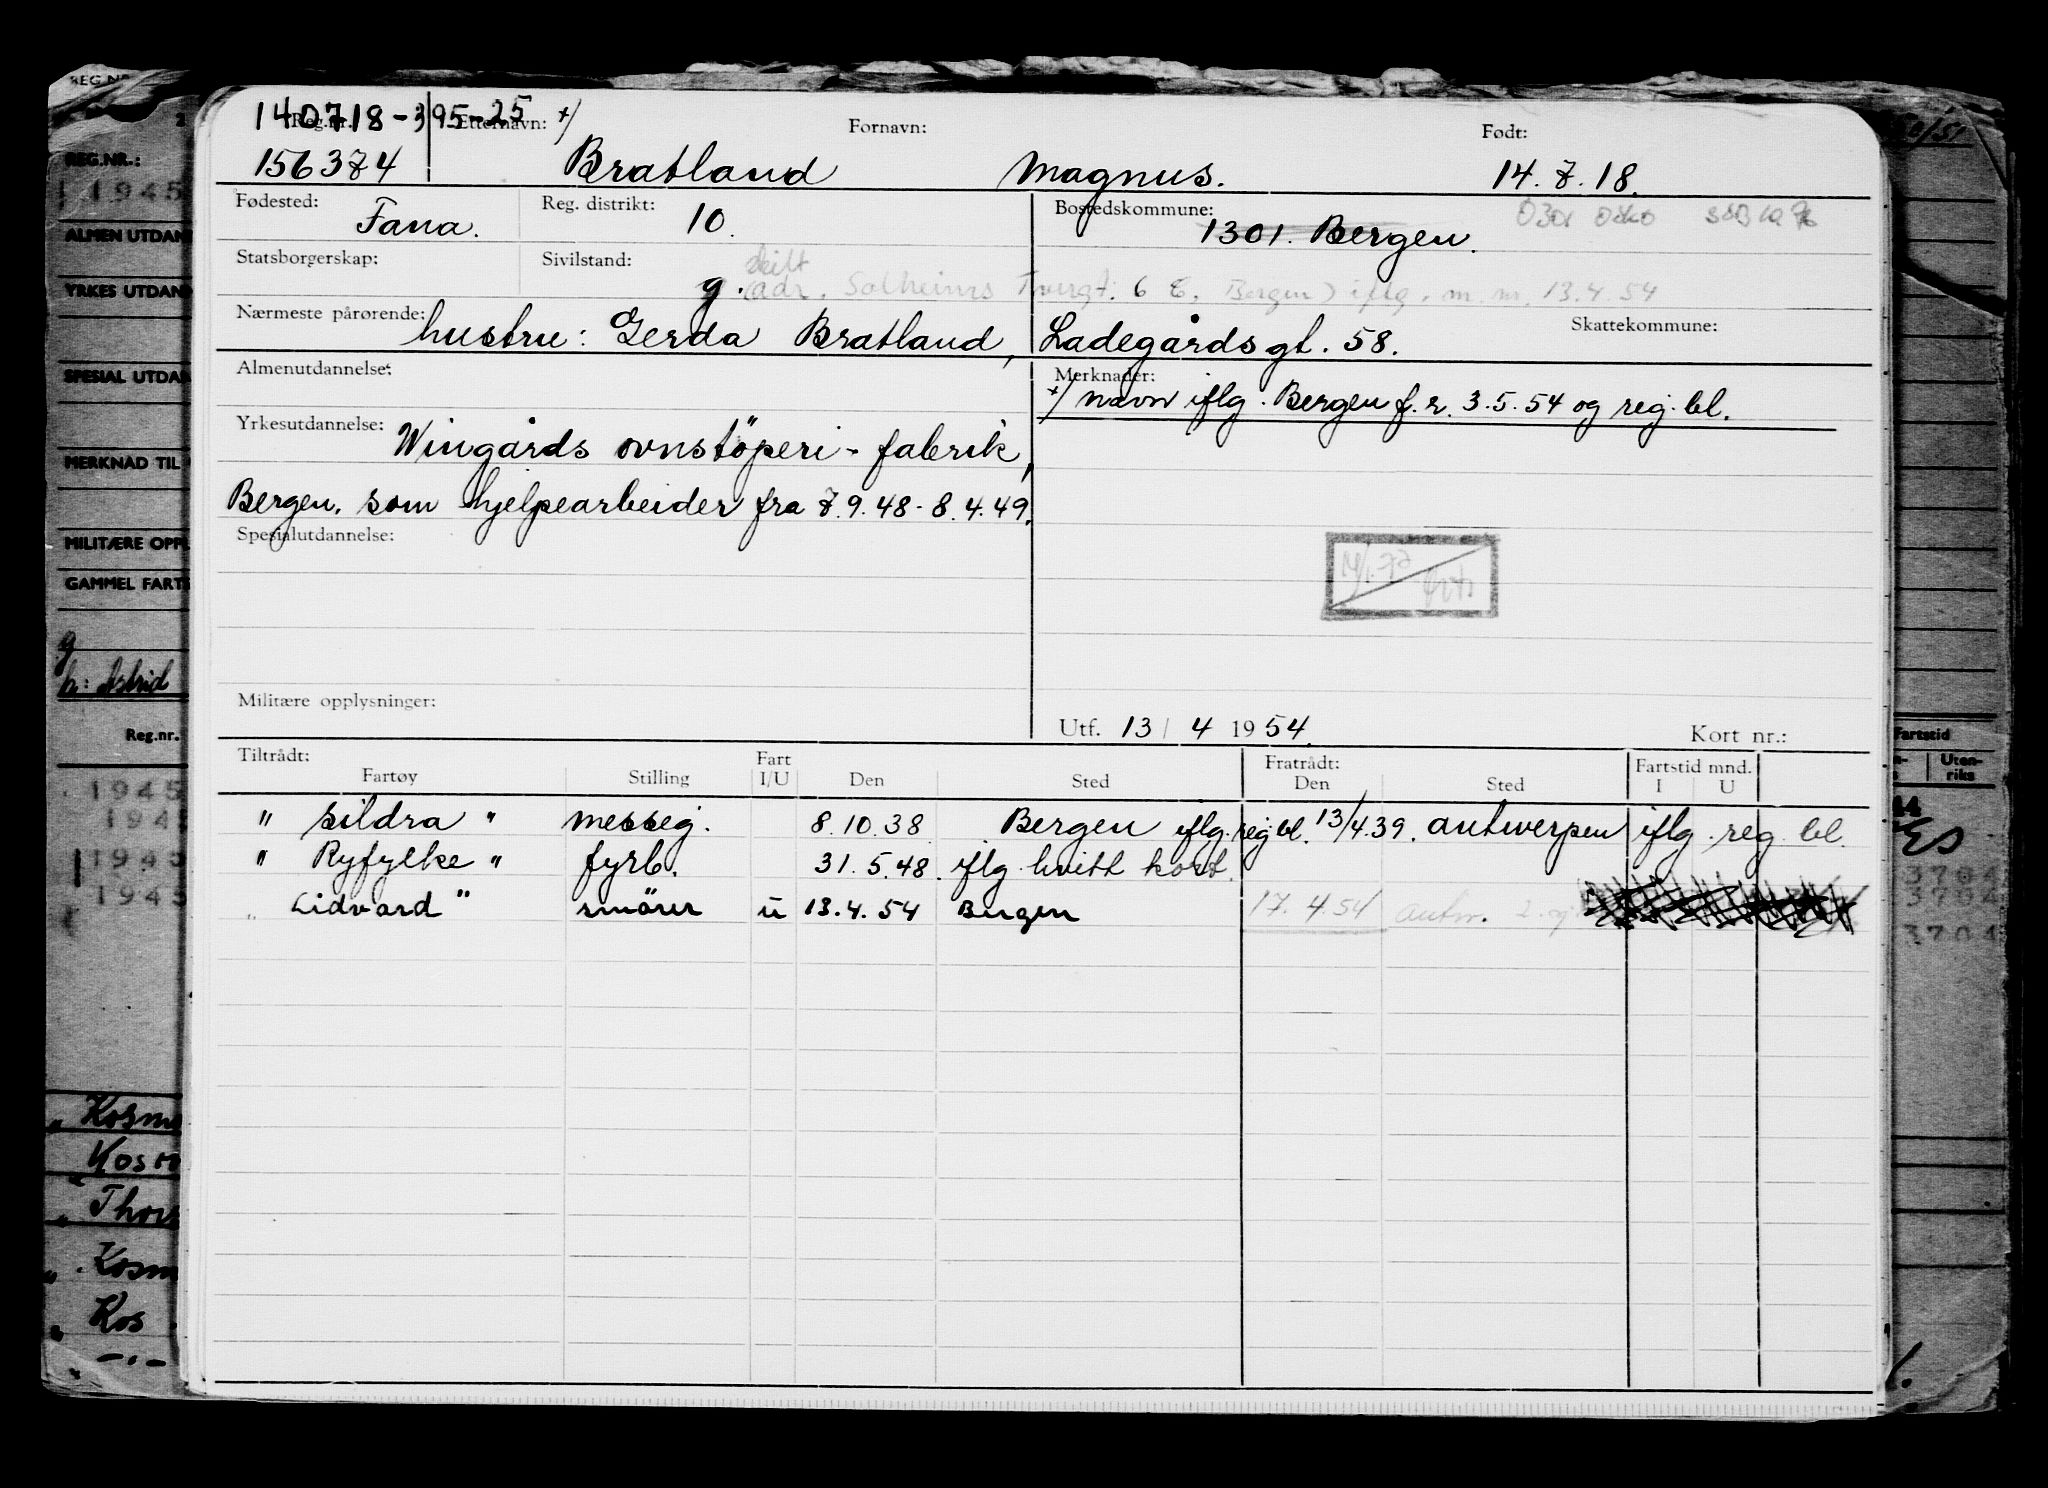 140718-395-25 +/
Reg.nr. Etternavn: Fornavn: Født:
156374 Bratland Magnus. 14.7.18.
Fødested: Fana. Reg. distrikt: 10. Bostedskommune: 1301. Bergen.
Statsborgerskap: Sivilstand: g. skilt
(adr. Solheims Tvergt. 6 C, Bergen) iflg. m. nr. 13.4.54
Nærmeste pårørende: hustru: Gerda Bratland, Ladegårdsgt. 58. Skattekommune:
Almenutdannelse: Merknader:
+/ navn iflg. Bergen f.r. 3.5.54 og reg. bl.
Yrkesutdannelse: Wingårds ovnstöperi - fabrik,
Bergen. som hjelpearbeider fra 7.9.48 - 8.4.49.
Spesialutdannelse:
Militære opplysninger:
Utf. 13 / 4 1954 Kort nr.:
Tiltrådt: Fart Fratrådt: Fartstid mnd.
Fartøy Stilling I/U Den Sted Den Sted I U
" Sildra " messeg. 8.10.38 Bergen iflg. reg bl. 13/4.39. Antwerpen iflg. reg. bl.
" Ryfylke " fyrb. 31.5.48. iflg hvitt kort.
" Lidvard " smörer u 13.4.54 Bergen 17.4.54 Antw.
REG.NR.:
1945
ALMEN UTDAN
YRKES UTDAN
SPESIAL UTDAN
MERKNAD TIL
MILITÆRE OPPL
GAMMEL FARTS
g
h: Astrid
Reg.nr.
1945
194
1945
1945
" Kosm
Kosm
" Thors
" Kosm
" Kos
Fartstid
Uten-
riks
3704
3704
3704